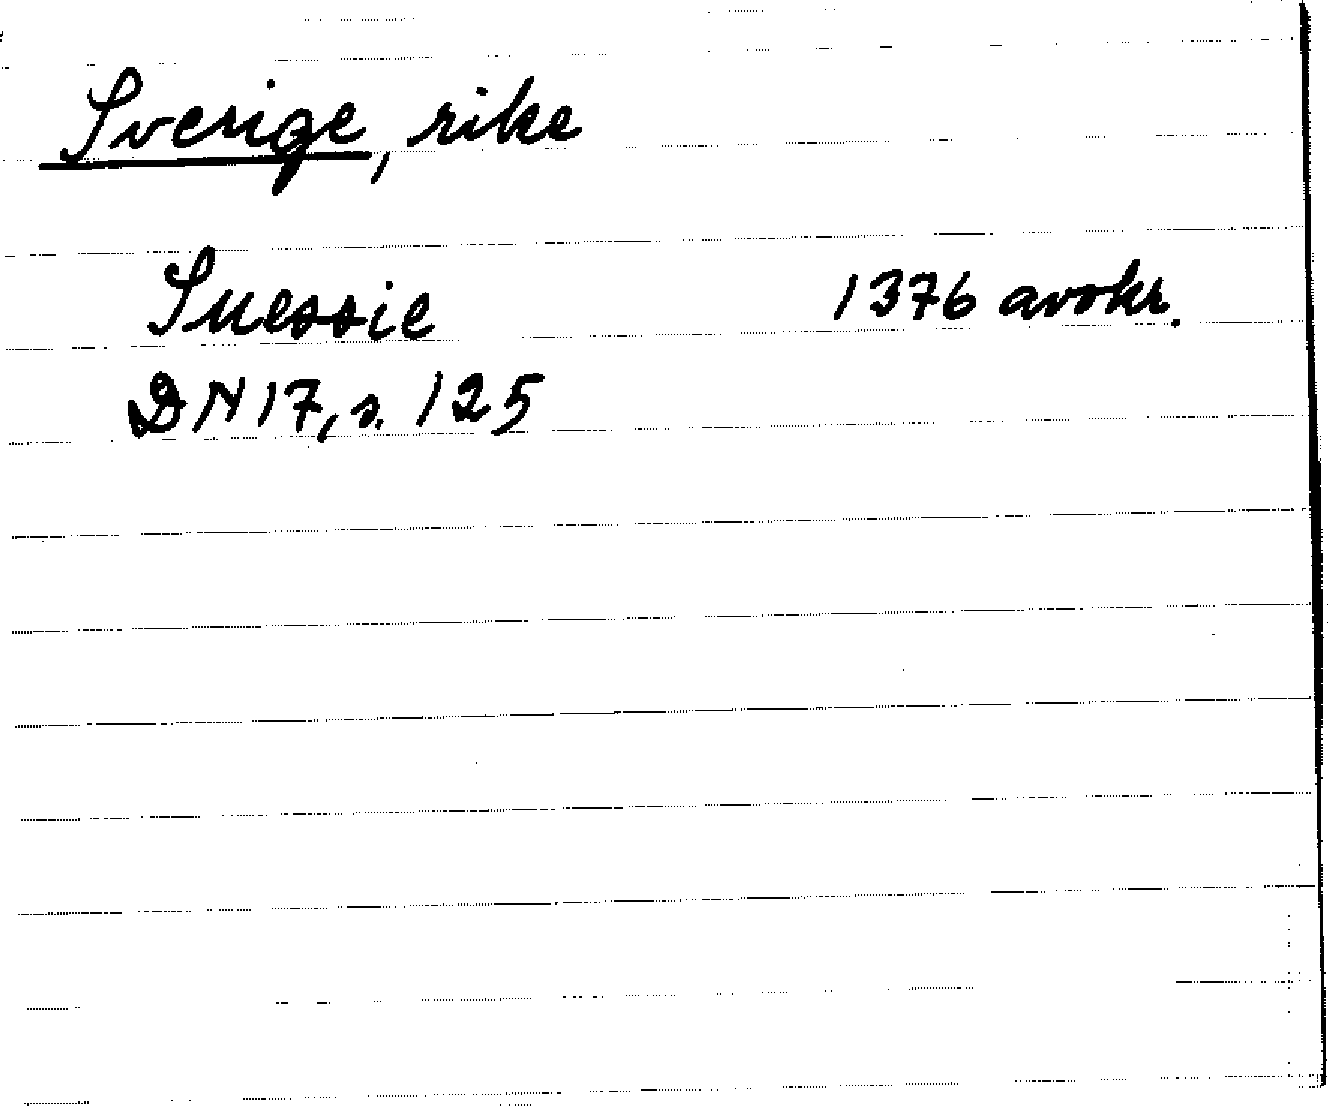 Sverige, rike
Suessie 1376 avskr.
DN 17, s. 125